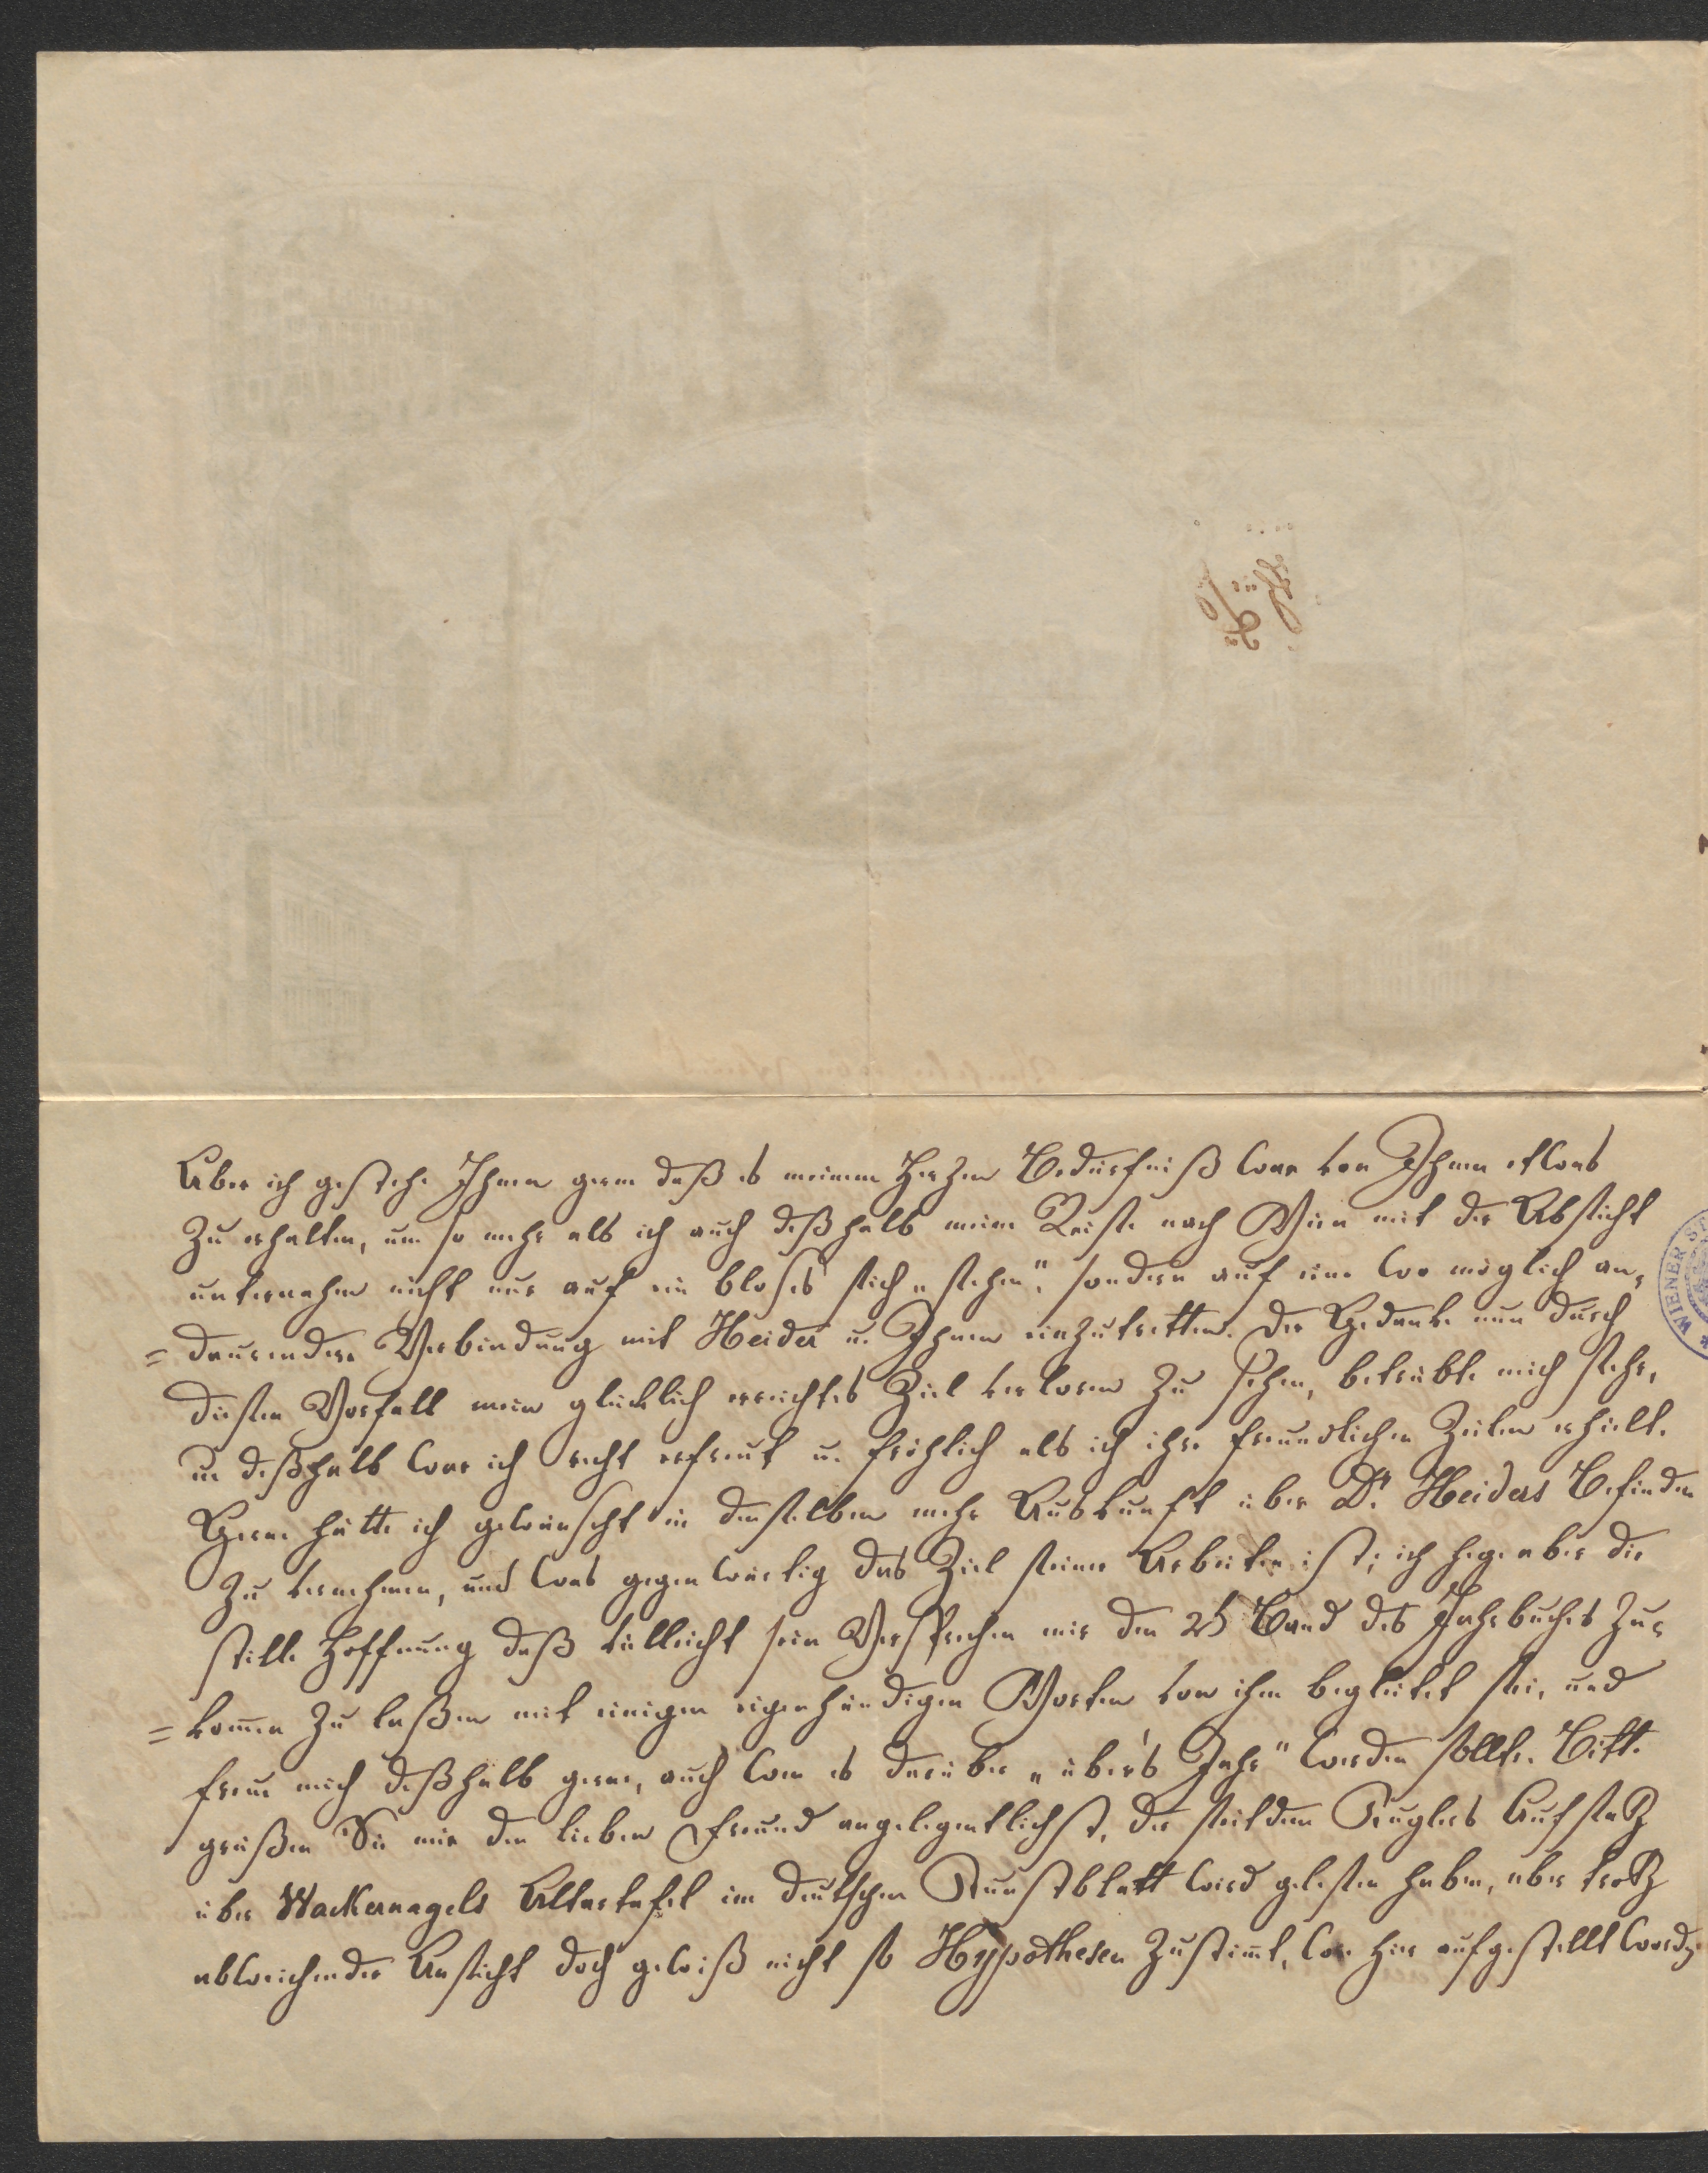 Aber ich gestehe Ihnen gern daß es meinem Herzen Bedürfniß war von Ihnen etwas
zu erhalten, um so mehr als ich auch deßhalb meine Reise nach Wien mit der Absicht
unternahm nicht nur auf ein bloßes sich „sehen", sondern auf eine wo möglich an-
= dauerndere Verbindung mit Heider u. Ihnen einzutretten. Der Gedanke nun durch
diesen Vorfall mein glücklich erreichtes Ziel verloren zu sehen, betrübte mich sehr,
u deßhalb war ich recht erfreut u. fröhlich als ich ihre freundlichen Zeilen erhielt.
Gerne hätte ich gewünscht in denselben mehr Auskunft über Dr. Heiders Befinden
zu vernehmen, und was gegenwärtig das Ziel seiner Arbeiten ist; ich hege aber die
stille Hoffnung daß vielleicht sein Versprechen mir den Band des Jahrbuches zu-
= komen zu laßen mit einigen eigenhändigen Worten von ihm begleitet sei, und
freue mich deßhalb gerne, auch wen es darüber „über's Jahr" werden sollte. Bitte
grüßen Sie mir den lieben Freund angelegentlichst, der seitdem Kuglers Aufsatz
über Wackernagels Altartafel im deutschen Kunstblatt wird gelesen haben, aber trotz
abweichender Ansicht doch gewiß nicht so Hypothesen zustimt, wie hier aufgestellt
WIENER